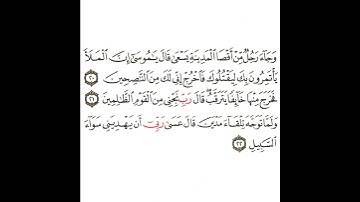 وَجَآءَ رَجُلٌ مِّنْ أَقْصَا ٱلْمَدِينَةِ يَسْعَىٰ قَالَ يَٰمُوسَىٰٓ إِنَّ ٱلْمَلَأَ
يَأْتَمِرُونَ بِكَ لِيَقْتُلُوكَ فَٱخْرُجْ إِنِّى لَكَ مِنَ ٱلنَّٰصِحِينَ ٢٠
فَخَرَجَ مِنْهَا خَآئِفًا يَتَرَقَّبُ ۖ قَالَ رَبِّ نَجِّنِى مِنَ ٱلْقَوْمِ ٱلظَّٰلِمِينَ ٢١
وَلَمَّا تَوَجَّهَ تِلْقَآءَ مَدْيَنَ قَالَ عَسَىٰ رَبِّىٓ أَن يَهْدِيَنِى سَوَآءَ
ٱلسَّبِيلِ ٢٢